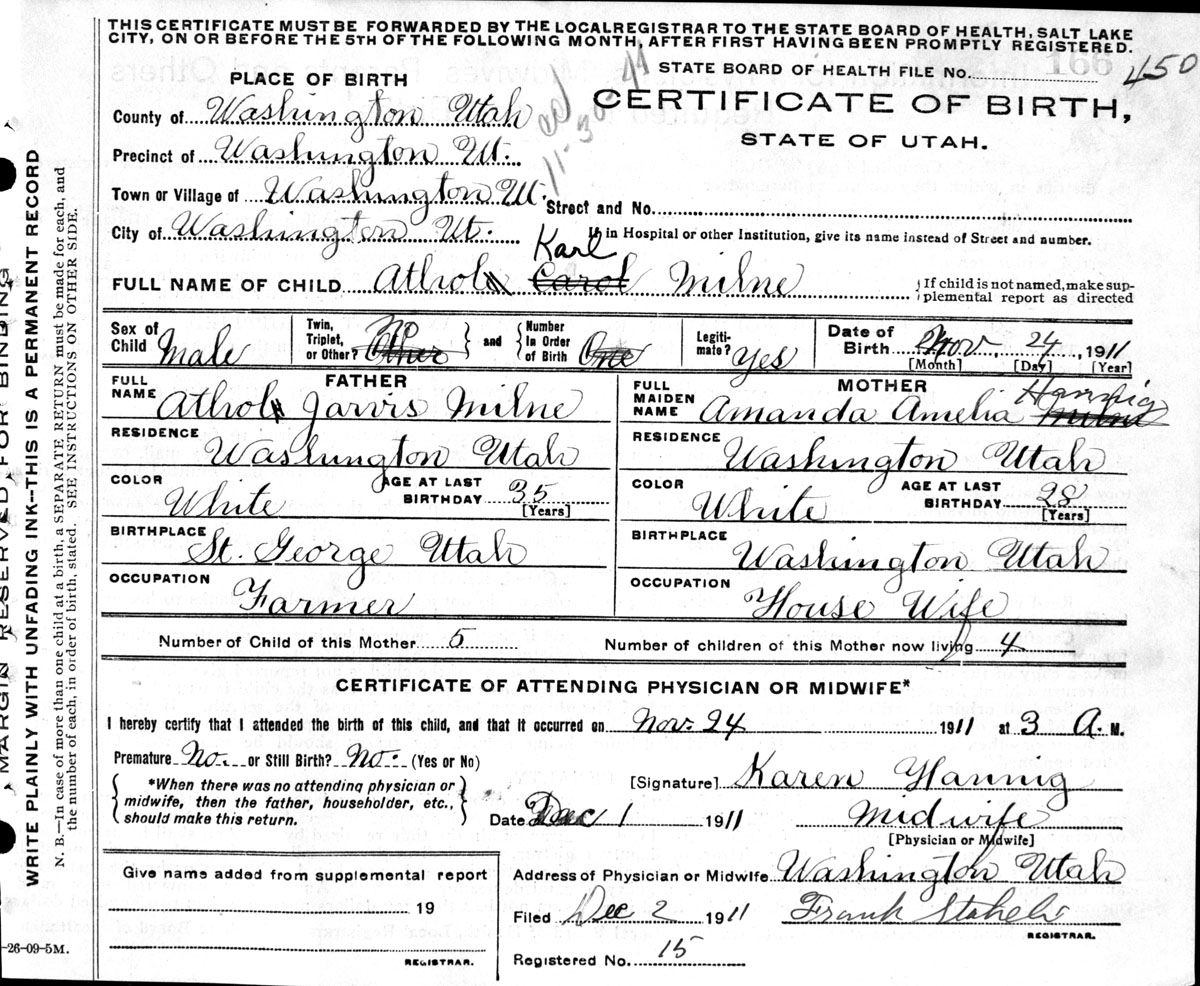 THIS CERTIFICATE MUST BE FORWARDED BY THE LOCAL REGISTRAR TO THE STATE BOARD OF HEALTH, SALT LAKE
CITY, ON OR BEFORE THE 5TH OF THE FOLLOWING MONTH, AFTER FIRST HAVING BEEN PROMPTLY REGISTERED.
STATE BOARD OF HEALTH FILE No. 166 450
PLACE OF BIRTH
CERTIFICATE OF BIRTH,
STATE OF UTAH.
County of Washington Utah
Precinct of Washington Ut.
Town or Village of Washington Ut.
Street and No.
City of Washington Ut.
If in Hospital or other Institution, give its name instead of Street and number.
Karl
FULL NAME OF CHILD Athol Carol Milne
If child is not named, make sup-
plemental report as directed
Sex of Child Male
Twin, Triplet, or Other? No Other
and
Number In Order of Birth One
Legiti-mate? Yes
Date of Birth Nov. 24 1911
[Month] [Day] [Year]
FATHER
FULL NAME Athol Jarvis Milne
RESIDENCE Washington Utah
COLOR White
AGE AT LAST BIRTHDAY 35
[Years]
BIRTHPLACE St. George Utah
OCCUPATION Farmer
MOTHER
FULL MAIDEN NAME Amanda Amelia Hannig Milne
RESIDENCE Washington Utah
COLOR White
AGE AT LAST BIRTHDAY 28
[Years]
BIRTHPLACE Washington Utah
OCCUPATION House Wife
Number of Child of this Mother 5
Number of children of this Mother now living 4
CERTIFICATE OF ATTENDING PHYSICIAN OR MIDWIFE*
I hereby certify that I attended the birth of this child, and that it occurred on Nov. 24 1911 at 3 A. M.
Premature No. or Still Birth? No. (Yes or No)
*When there was no attending physician or
midwife, then the father, householder, etc.,
should make this return.
[Signature] Karen Hannig
Date Dec 1 1911
Midwife
[Physician or Midwife]
Give name added from supplemental report
19
REGISTRAR.
Address of Physician or Midwife Washington Utah
Filed Dec 2 1911 Frank Staheli
REGISTRAR.
Registered No. 15
-26-09-5M.
MARGIN RESERVED FOR BINDING
WRITE PLAINLY WITH UNFADING INK--THIS IS A PERMANENT RECORD
N. B.—In case of more than one child at a birth, a SEPARATE RETURN must be made for each, and
the number of each, in order of birth, stated. SEE INSTRUCTIONS ON OTHER SIDE.